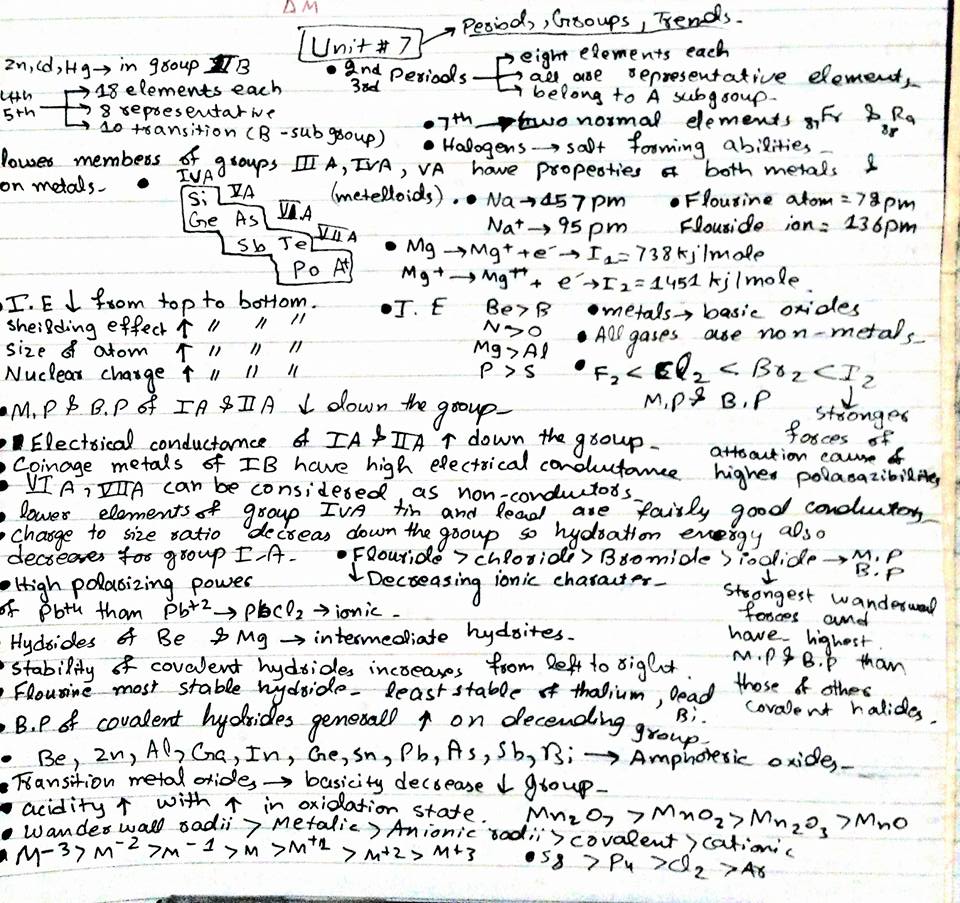 ΔM
Periods, Groups, Trends.
Unit # 7
Zn, Cd, Hg → in group II B
4th 5th → 18 elements each
→ 8 representative
→ 10 transition (B-subgroup)
• 2nd 3rd Periods → eight elements each
→ all are representative elements
→ belong to A subgroup.
• 7th → two normal elements 87Fr & 88Ra
• Halogens → salt forming abilities
lower members of groups III A, IVA, VA have properties of both metals &
on metals. • (metelloids).
IVA
Si VA
Ge As VI.A
Sb Te VII A
Po At
• Na → 157 pm
Na+ → 95 pm
• Flourine atom = 72 pm
Flouride ion = 136 pm
• Mg → Mg+ + e- → I1 = 738 kj/mole
Mg+ → Mg++ + e- → I2 = 1451 kj/mole.
• I.E ↓ from top to bottom.
Sheilding effect ↑ " " "
Size of atom ↑ " " "
Nuclear charge ↑ " " "
• I.E Be>B
N>O
Mg>Al
P>S
• metals → basic oxides
• All gases are non-metals
• F2 < Cl2 < Br2 < I2
M.P & B.P
↓
Stronger
forces of
attraction cause of
higher polarazibilities
• M.P & B.P of IA & II A ↓ down the group
• Electrical conductance of IA & II A ↑ down the group
• Coinage metals of IB have high electrical conductance
• VI A, VII A can be considered as non-conductors
• lower elements of group IVA tin and lead are fairly good conductors
• Charge to size ratio decreas down the group so hydration energy also
decreases for group I-A.
• Flouride > chloride > Bromide > iodide → M.P B.P
↳ Decreasing ionic character
↓
Strongest wanderwaal
forces and
have highest
M.P & B.P than
those of other
covalent halides.
• High polarizing power
of Pb+4 than Pb+2 → PbCl2 → ionic.
• Hydrides of Be & Mg → intermediate hydrites.
• Stability of covalent hydrides increases from left to right.
• Flourine most stable hydride - least stable of thalium, lead
Bi.
• B.P of covalent hydrides generall ↑ on decending group
• Be, Zn, Al, Ga, In, Ge, Sn, Pb, As, Sb, Bi → Amphoteric oxides
• Transition metal oxides → basicity decrease ↓ group
• acidity ↑ with ↑ in oxidation state. Mn2O7 > MnO2 > Mn2O3 > MnO
• Wanderwall radii > Metalic > Anionic radii > covalent > cationic
• M-3 > M-2 > M-1 > M > M+1 > M+2 > M+3
• S8 > P4 > Cl2 > Ar